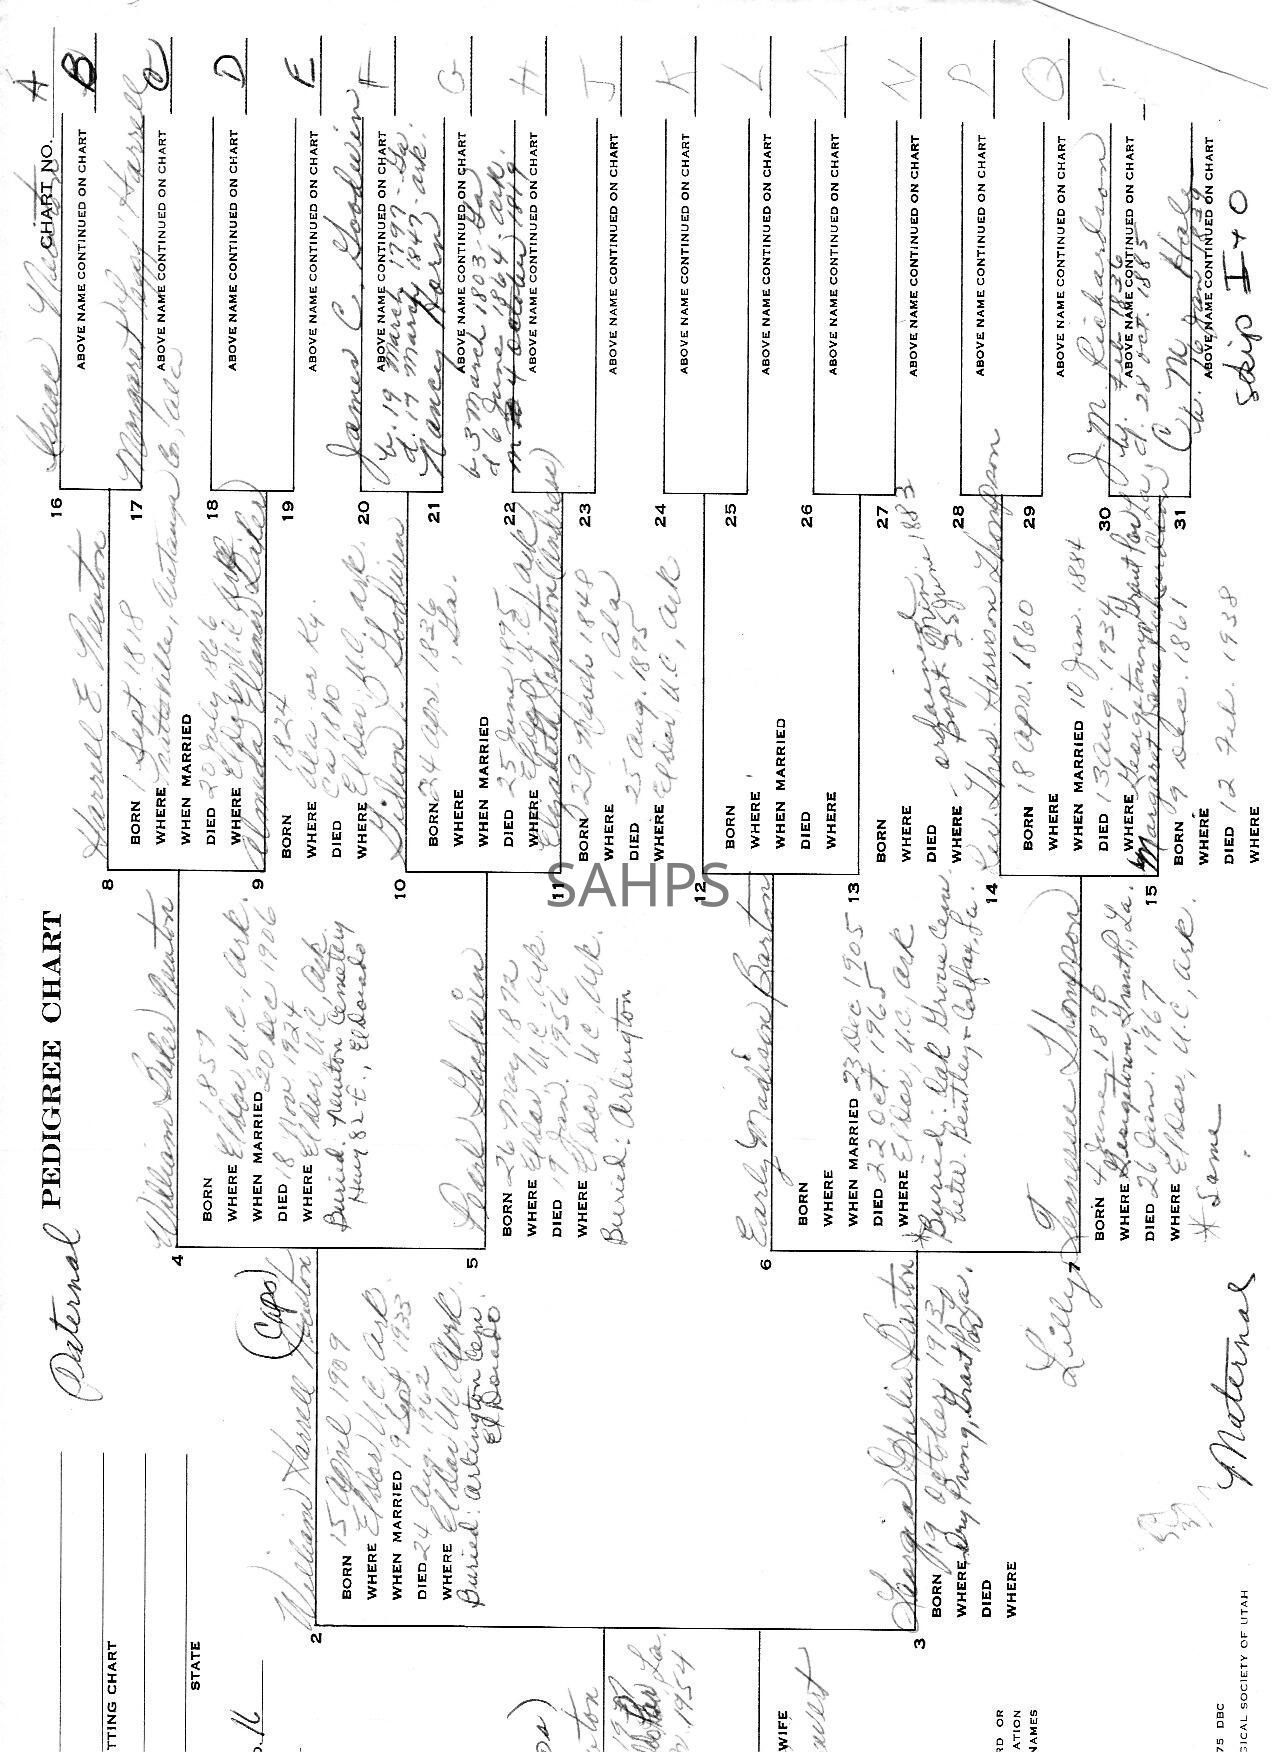 Paternal PEDIGREE CHART
CHART NO.
TTING CHART
STATE
o. 16
WIFE
RD OR
ATION
NAMES
75 DBC
GICAL SOCIETY OF UTAH
2
(Caps)
William Harrell Newton
BORN 15 April 1909
WHERE ElDor, U.C. Ark
WHEN MARRIED 19 Sept. 1933
DIED 24 Aug. 1962
WHERE ElDor UC Ark
Buried: Arlington Cem.
El Dorado
3
Georgia Ophelia Barton
BORN 19 October 1913
WHERE Dry Prong, Grant Par, La.
DIED
WHERE
Maternal
4
William Baker Newton
BORN 1857
WHERE ElDor, U.C., Ark.
WHEN MARRIED 20 Dec 1906
DIED 18 Nov 1924
WHERE ElDor, U.C. Ark
Buried: Newton Cemetery
Hwy 82-E., ElDorado
5
Pearl Goodwin
BORN 26 May 1872
WHERE ElDor, U.C. Ark.
DIED 19 Jan. 1956
WHERE ElDor, UC, Ark.
Buried: Arlington
6
Early Madison Barton
BORN
WHERE
WHEN MARRIED 23 Dec 1905
DIED 22 Oct. 1965
WHERE ElDor, U.C, Ark
*Buried: Oak Grove Cem.
inter. Bentley & Colfax, La.
7
Lilly Tennessee Thompson
BORN 4 June 1890
WHERE Georgetown, Grant P., La.
DIED 26 Jan. 1967
WHERE ElDor, U.C, Ark.
* Same
8
Harrell E. Newton
BORN 1 Sept. 1818
WHERE Prattville, Autauga Co., Ala
WHEN MARRIED
DIED 20 July 1866
WHERE
9
BORN 1824
WHERE Ala or Ky.
DIED Ca 1880
WHERE ElDor, U.C, Ark.
10
Gideon J. Goodwin
BORN 24 Apr. 1836
WHERE , Ga.
WHEN MARRIED
DIED 25 June 1895
WHERE ElDor, U.C, Ark
11
Elizabeth Johnston (Andrews)
BORN 29 March 1848
WHERE , Ala
DIED 25 Aug. 1895
WHERE ElDor U.C, Ark
12
BORN
WHERE
WHEN MARRIED
DIED
WHERE
13
BORN
WHERE
DIED
WHERE
14
Rev. Thos. Harrison Thompson
BORN 18 Apr. 1860
WHERE
WHEN MARRIED 10 Jan. 1884
DIED 13 Aug. 1934
WHERE Georgetown, Grant Par, La
15
Margaret Jane Richardson
BORN 9 Dec. 1861
WHERE
DIED 12 Feb. 1938
WHERE
16
ABOVE NAME CONTINUED ON CHART A
17
Margaret "Peggy" Harrell
ABOVE NAME CONTINUED ON CHART B
18
ABOVE NAME CONTINUED ON CHART C
19
ABOVE NAME CONTINUED ON CHART D
20
James C. Goodwin
ABOVE NAME CONTINUED ON CHART E
b. 19 March 1797 - Ga
d. 17 March 1847 - Ark.
21
Nancy Horn
ABOVE NAME CONTINUED ON CHART F
b 3 March 1803 - Ga
d 6 June 1864 - Ark.
m 4 October 1819
22
ABOVE NAME CONTINUED ON CHART G
23
ABOVE NAME CONTINUED ON CHART H
24
ABOVE NAME CONTINUED ON CHART J
25
ABOVE NAME CONTINUED ON CHART K
26
ABOVE NAME CONTINUED ON CHART L
27
ABOVE NAME CONTINUED ON CHART M
28
ABOVE NAME CONTINUED ON CHART N
29
ABOVE NAME CONTINUED ON CHART P
30
J. M. Richardson
ABOVE NAME CONTINUED ON CHART Q
b. Feb. 1836
d. 28 Oct. 1885
31
C. M. Haly
ABOVE NAME CONTINUED ON CHART
b. 16 Jan 1839
Skip I + O
SAHPS